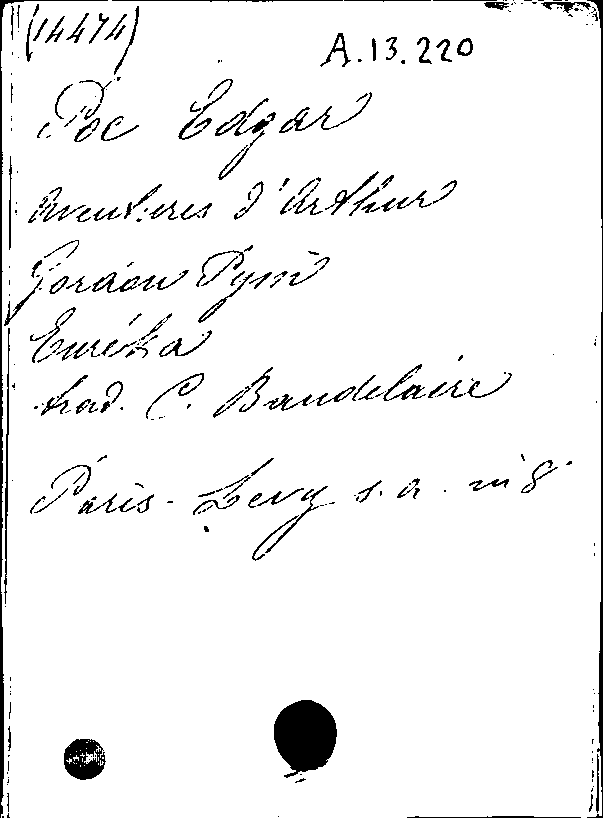 (14474)
A.13.220
Poe Edgar
Aventures d'Arthur
Gordon Pym
Euréka
trad. C. Baudelaire
Paris - Levy s.a. in 8°